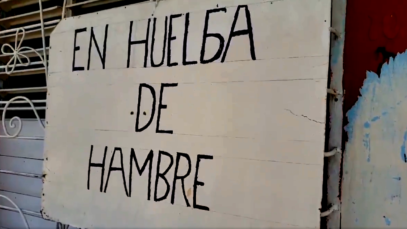 EN HUELGA
DE
HAMBRE